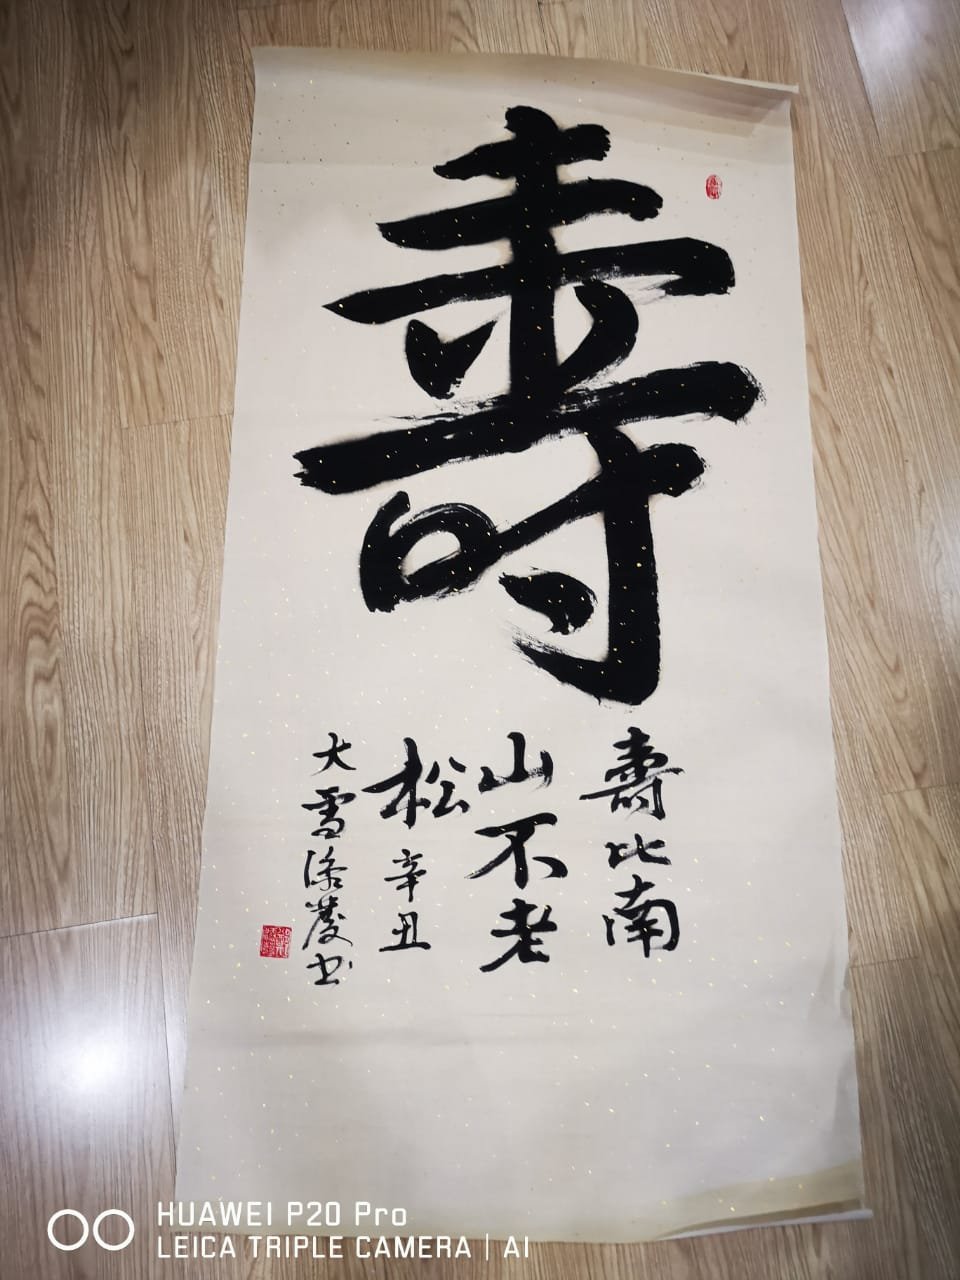 壽
壽比南
山不老
松辛丑
大雪添慶书
HUAWEI P20 Pro
LEICA TRIPLE CAMERA | AI